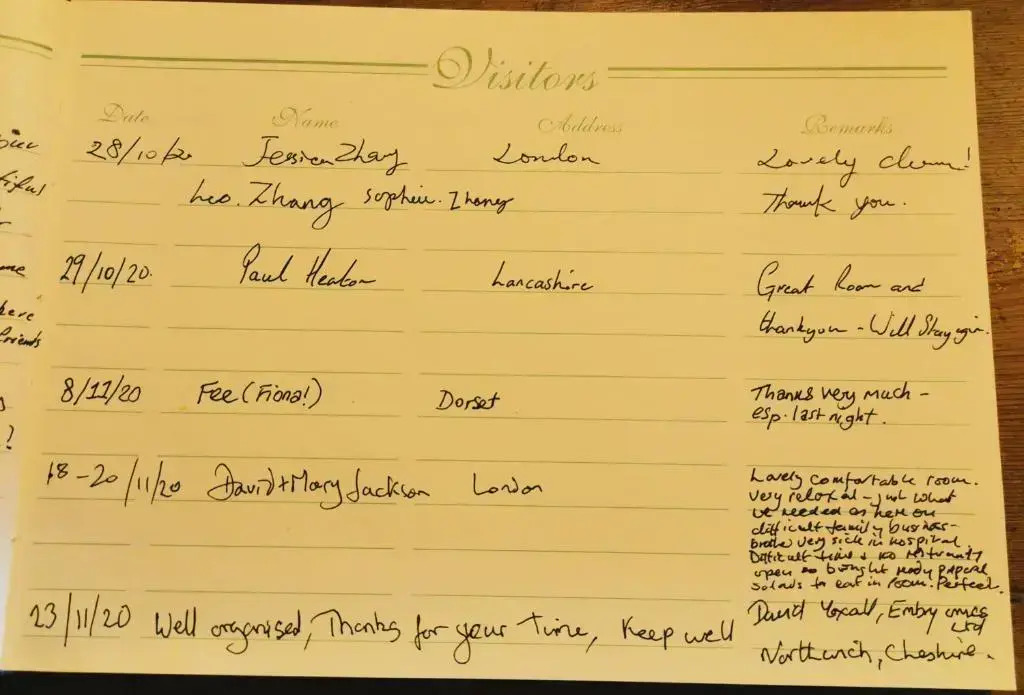 Visitors
Date Name Address Remarks
28/10/20 Jessica Zhang London Lovely clean!
Leo. Zhang Sophie. Zhang Thank you.
29/10/20. Paul Heaton Lancashire Great Room and
thankyou - Will Stay again.
8/11/20 Fee (Fiona!) Dorset Thanks very much -
esp. last night.
18-20/11/20 David + Mary Jackson London Lovely comfortable room.
Very relaxed - just what
we needed as here on
difficult family business -
very sick in hospital.
Difficult time & no restaurants
open so bought ready prepared
salads to eat in room. Perfect.
23/11/20 Well organised, Thanks for your Time, Keep well David Yoxall, Ltd
Northwich, Cheshire.